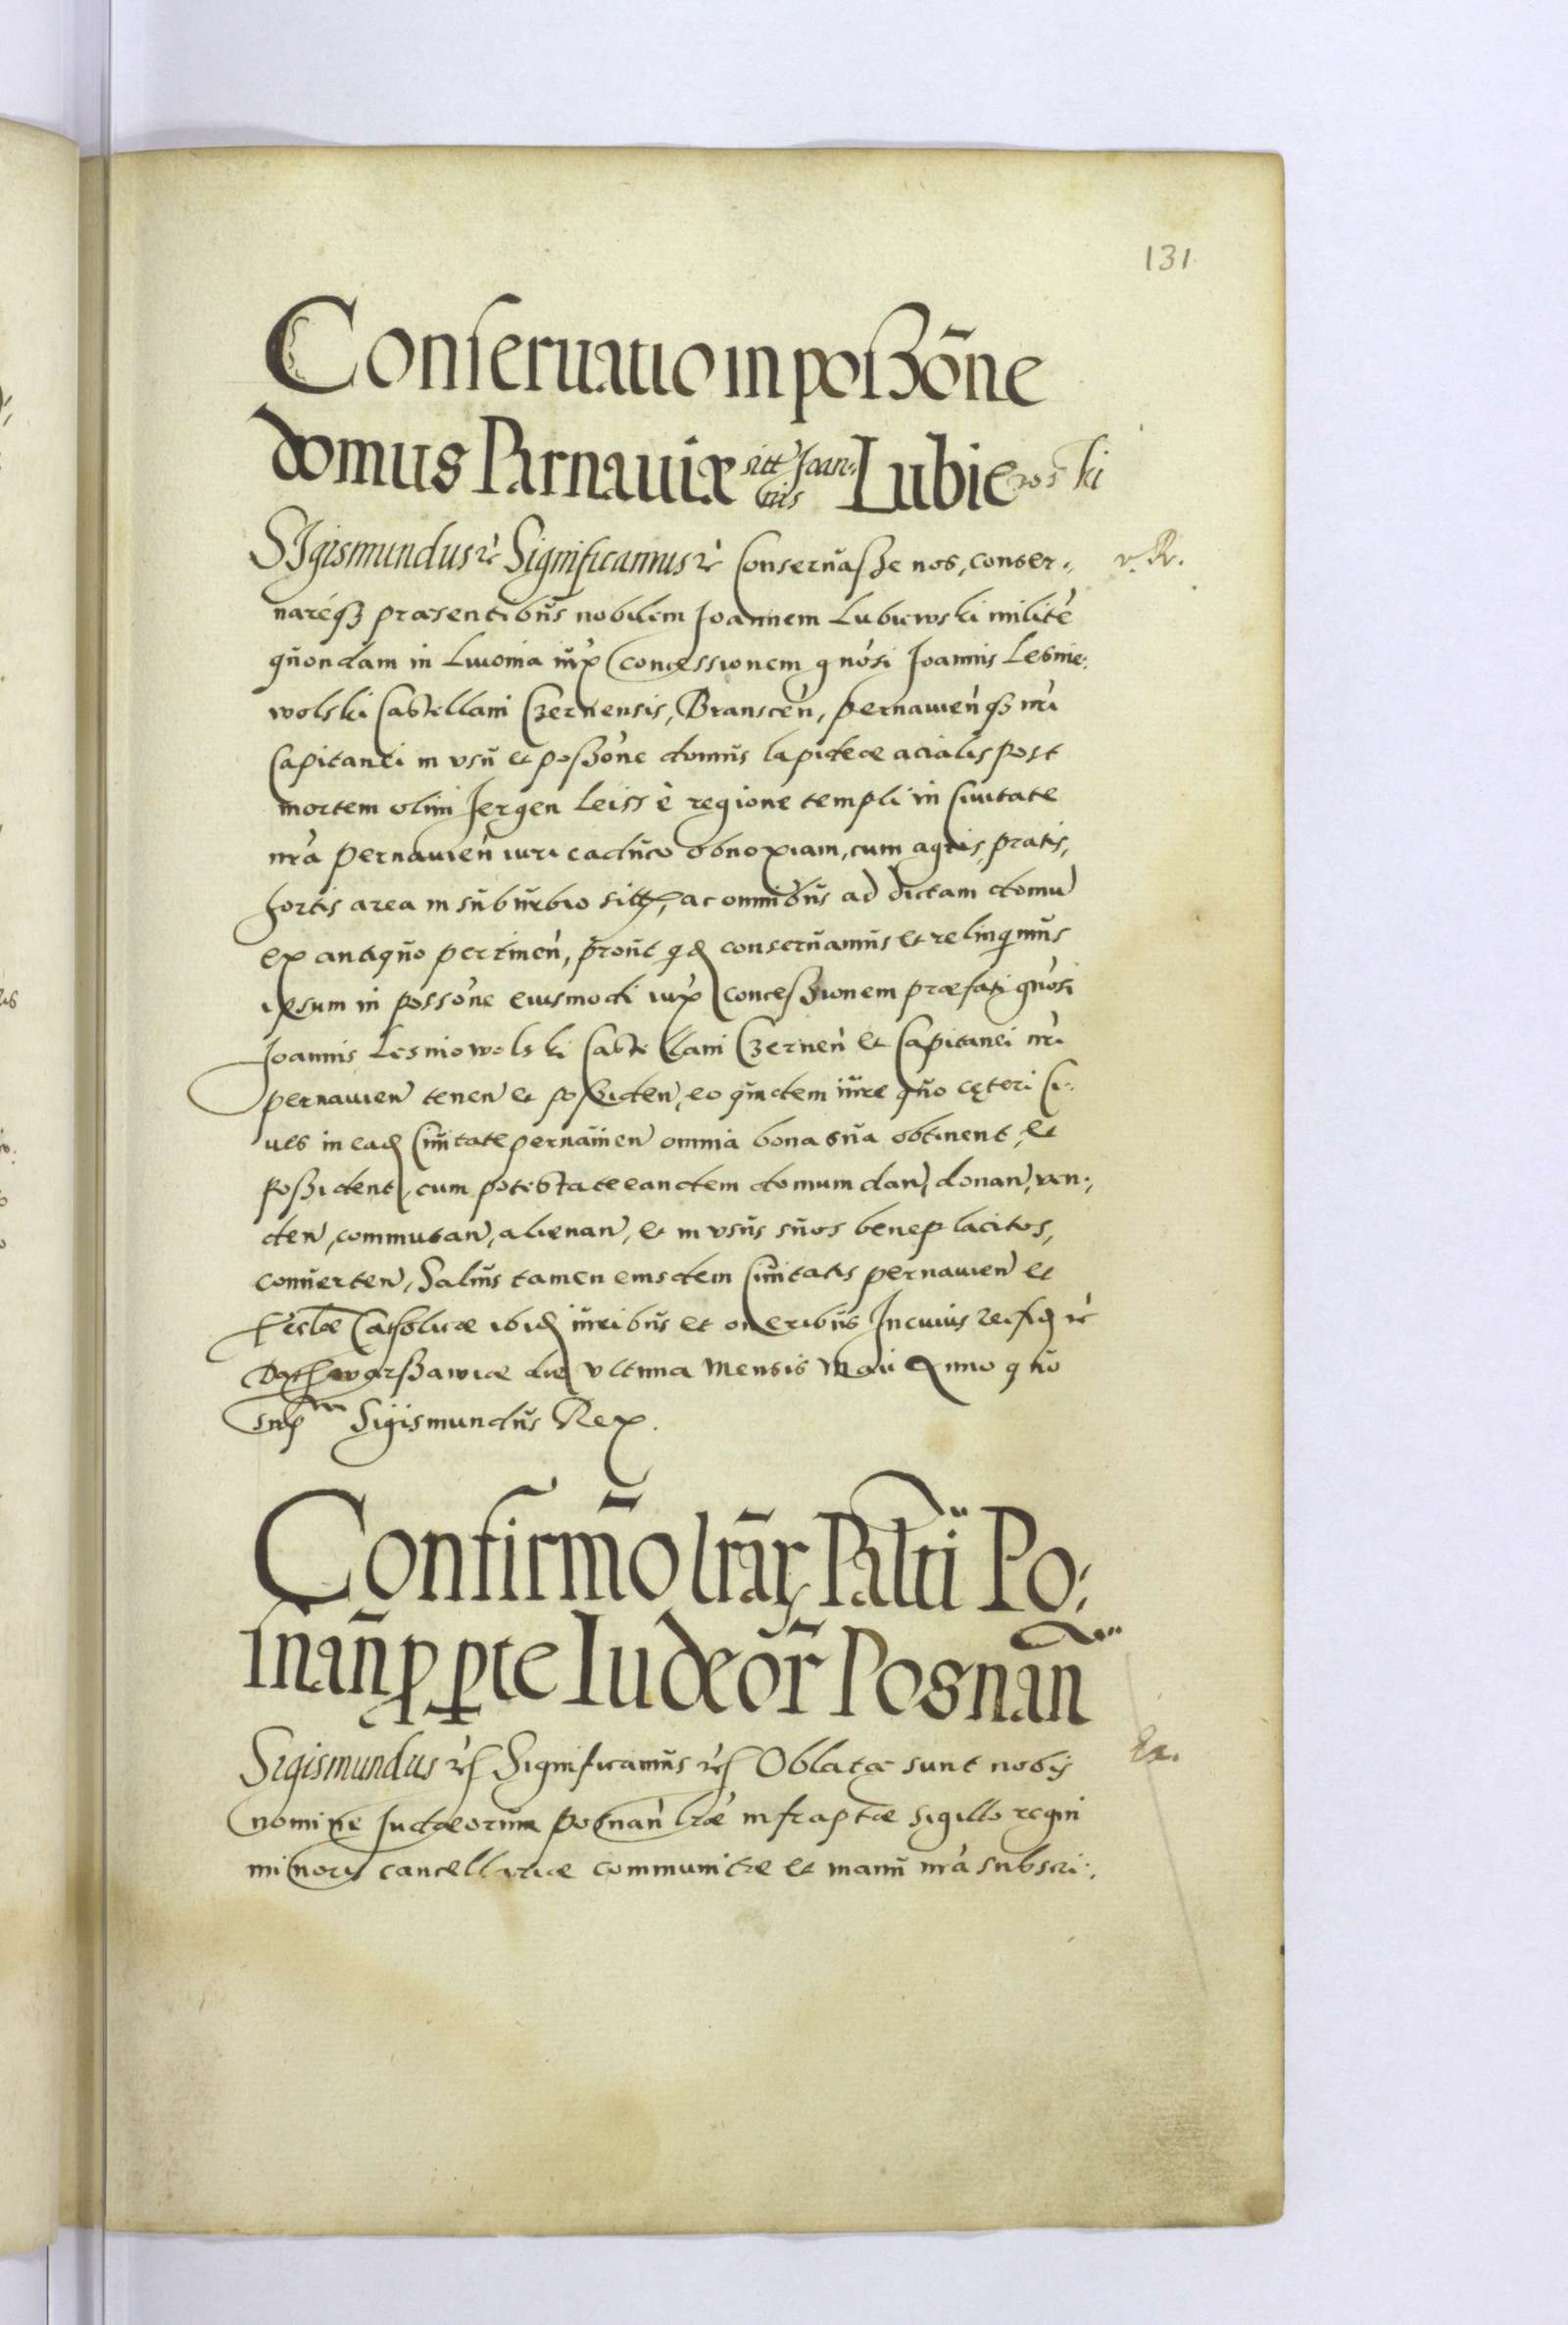 131
Conseruatio in poßōne
domus Parnauiæ sitt Joan:
nis Lubiewski
SIgismundus etc Significamus etc Conseruaße nos, conser:,
v. R.
uareq3 præsentibus nobilem Joannem Lubiewski militē
quondam in Liuonia iux concessionem gnosi Joannis Lesnie:
wolski Castellani Czernensis, Branscen, pernauienq3 nri
Capitanei in vsu et poßone domus lapideæ acialis post
mortem olim Jergen Leiss è regione templi in Ciuitate
nra pernauien iuri caduco obnoxiam, cum agris, pratis,
hortis area in suburbio sitt, ac omnibus ad dictam domū
ex antiquo pertinen, prout qd conseruamus et relinquimus
ipsum in possone eiusmodi iux conceßionem præfati gnosi
Joannis Lesniowolski Castellani Czernen et Capitanei nri
pernauien tenen et poßiden, eo quidem iure quo cęteri Ci:
ues in ead Ciuitate pernauien omnia bona sua obtinent, et
poßident, cum potestate eandem domum dan, donan, ven:,
den, commutan, alienan, et in vsus suos beneplacitos,
conuerten, Saluis tamen eiusdem Ciuitatis pernauien et
Ecclæ Catholicæ ibid iuribus et oneribus In cuius rei fid etc
Dat warßawiæ die vltima Mensis Maii Anno quo
supra Sigismundus Rex.
Confirmō lrār Palti Po:
snan̄ p pte Iudæor̄ Posnan̄
Sigismundus etc Significamus etc Oblatæ sunt nobis
Ex.
nomine Judæorum posnan lræ infraptæ sigillo regni
minoris cancellariæ communitæ et manu nra subscri: